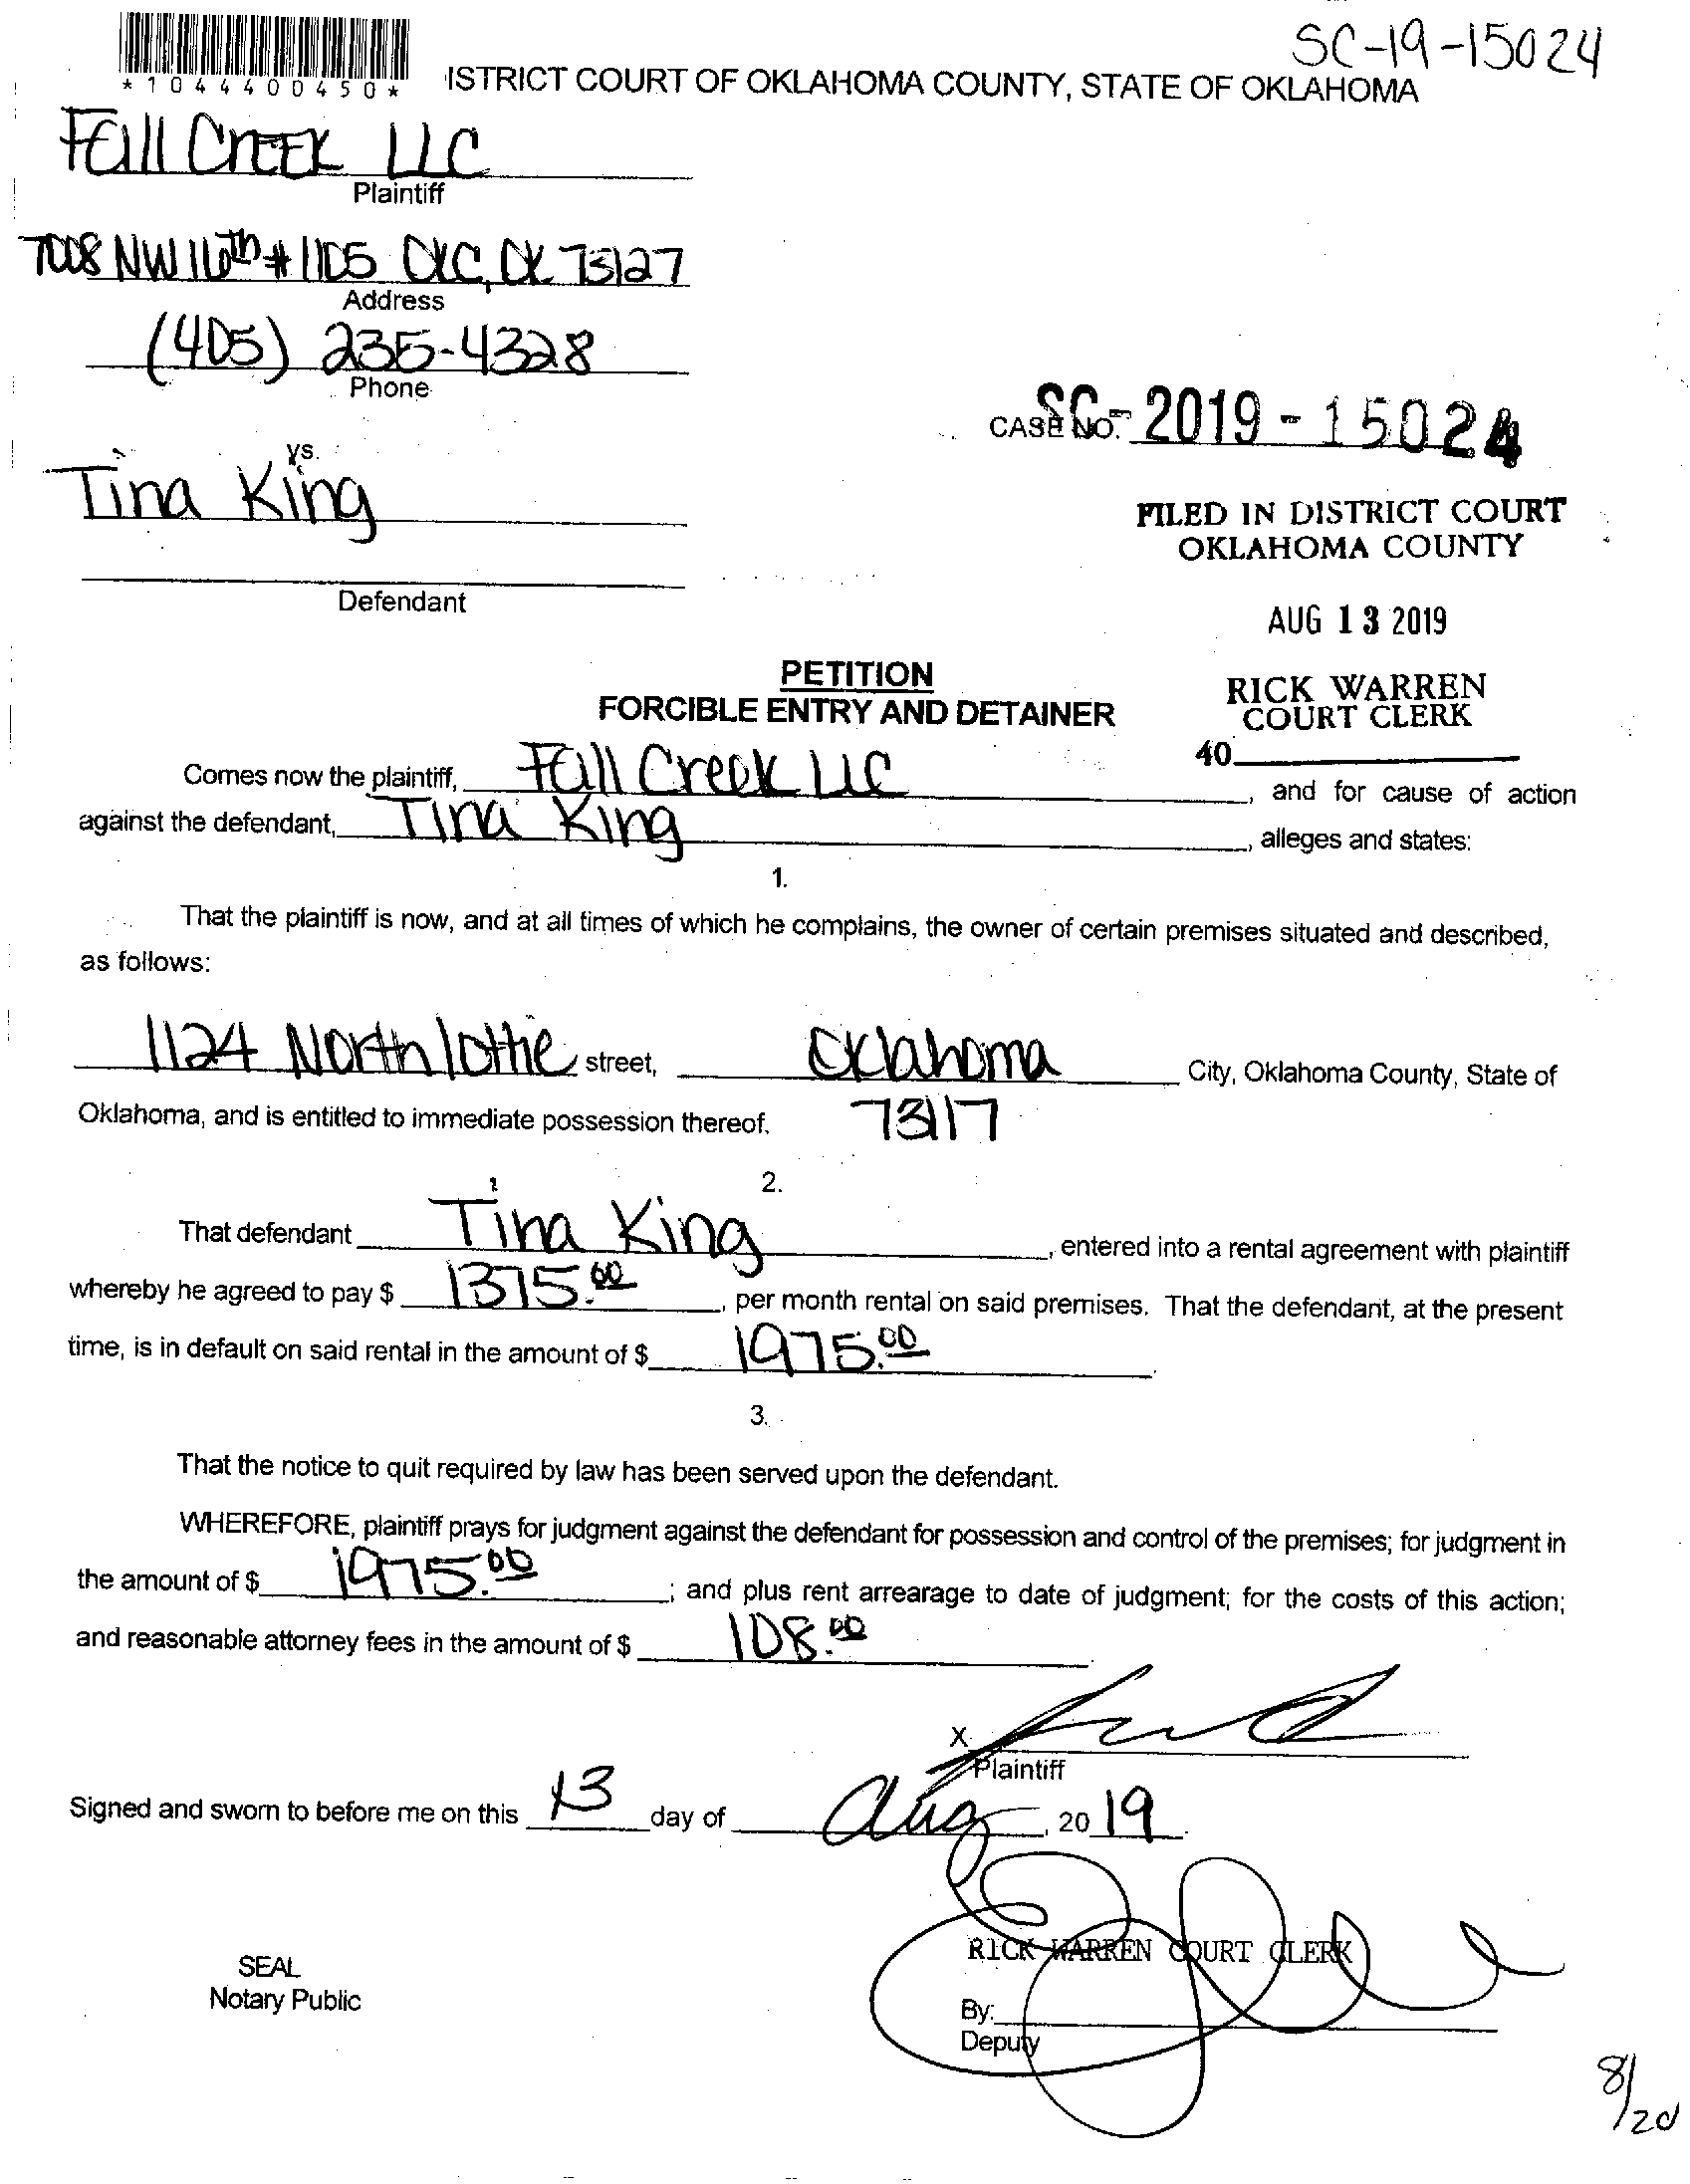 SC-19-15024
*1044400450*
ISTRICT COURT OF OKLAHOMA COUNTY, STATE OF OKLAHOMA
Fall Creek LLC
Plaintiff
7008 NW 16th #1105 OKC, OK 73127
Address
(405) 235-4328
Phone
CASE NO. SC-2019-15024
vs.
Tina King
FILED IN DISTRICT COURT
OKLAHOMA COUNTY
Defendant
AUG 13 2019
PETITION
FORCIBLE ENTRY AND DETAINER
RICK WARREN
COURT CLERK
40
Comes now the plaintiff, Fall Creek LLC, and for cause of action
against the defendant, Tina King, alleges and states:
1.
That the plaintiff is now, and at all times of which he complains, the owner of certain premises situated and described,
as follows:
1124 North lottie street, Oklahoma City, Oklahoma County, State of
Oklahoma, and is entitled to immediate possession thereof. 73117
2.
That defendant Tina King, entered into a rental agreement with plaintiff
whereby he agreed to pay $ 1375.00, per month rental on said premises. That the defendant, at the present
time, is in default on said rental in the amount of $ 1975.00.
3.
That the notice to quit required by law has been served upon the defendant.
WHEREFORE, plaintiff prays for judgment against the defendant for possession and control of the premises; for judgment in
the amount of $ 1975.00; and plus rent arrearage to date of judgment; for the costs of this action;
and reasonable attorney fees in the amount of $ 108.00
X
Plaintiff
Signed and sworn to before me on this 13 day of Aug, 2019.
RICK WARREN COURT CLERK
SEAL
Notary Public
By:
Deputy
8/20